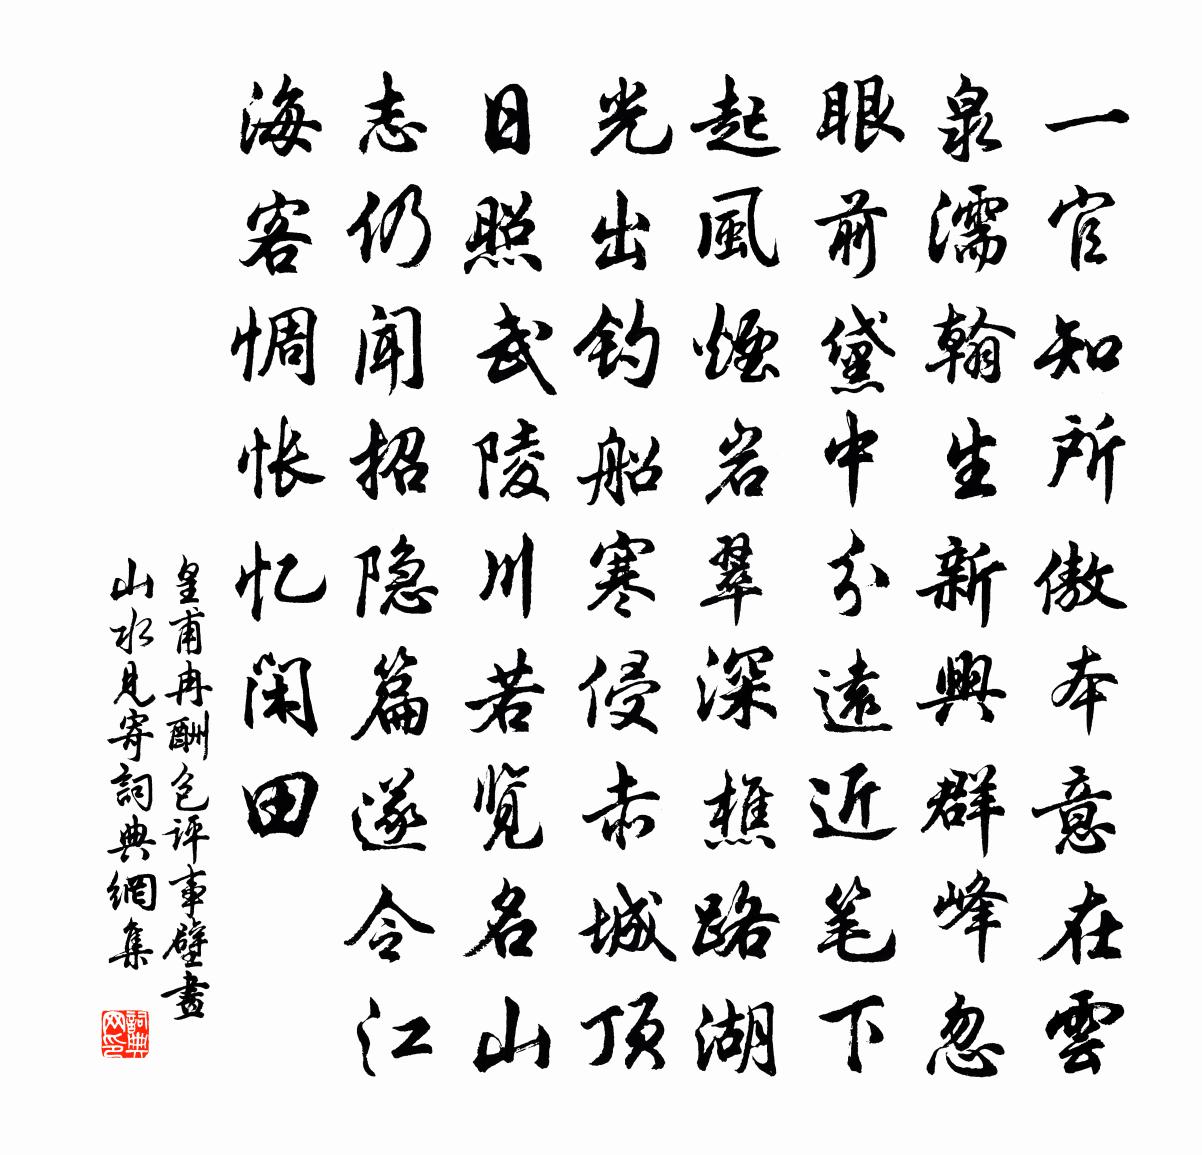 一官知所傲本意在雲
泉濡翰生新興群峰忽
眼前黛中分遠近笔下
起風煙岩翠深樵路湖
光出钓船寒侵赤城顶
日照武陵川若览名山
志仍闻招隐篇遂令江
海客惆怅忆闲田
皇甫冉酬包评事壁畫
山水見寄詞典網集
詞典
网印